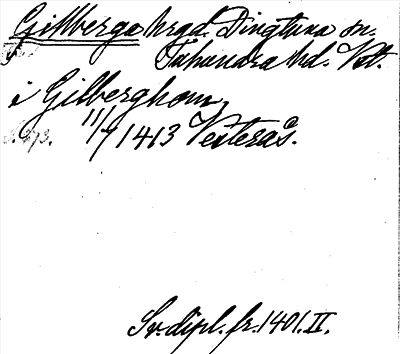 Gillberga hrgd. Dingtuna sn.
Tuhundra hd. Vstl.
i Gilberghom
11/9 1413 Vesterås.
Sv. dipl. fr. 1401. II.